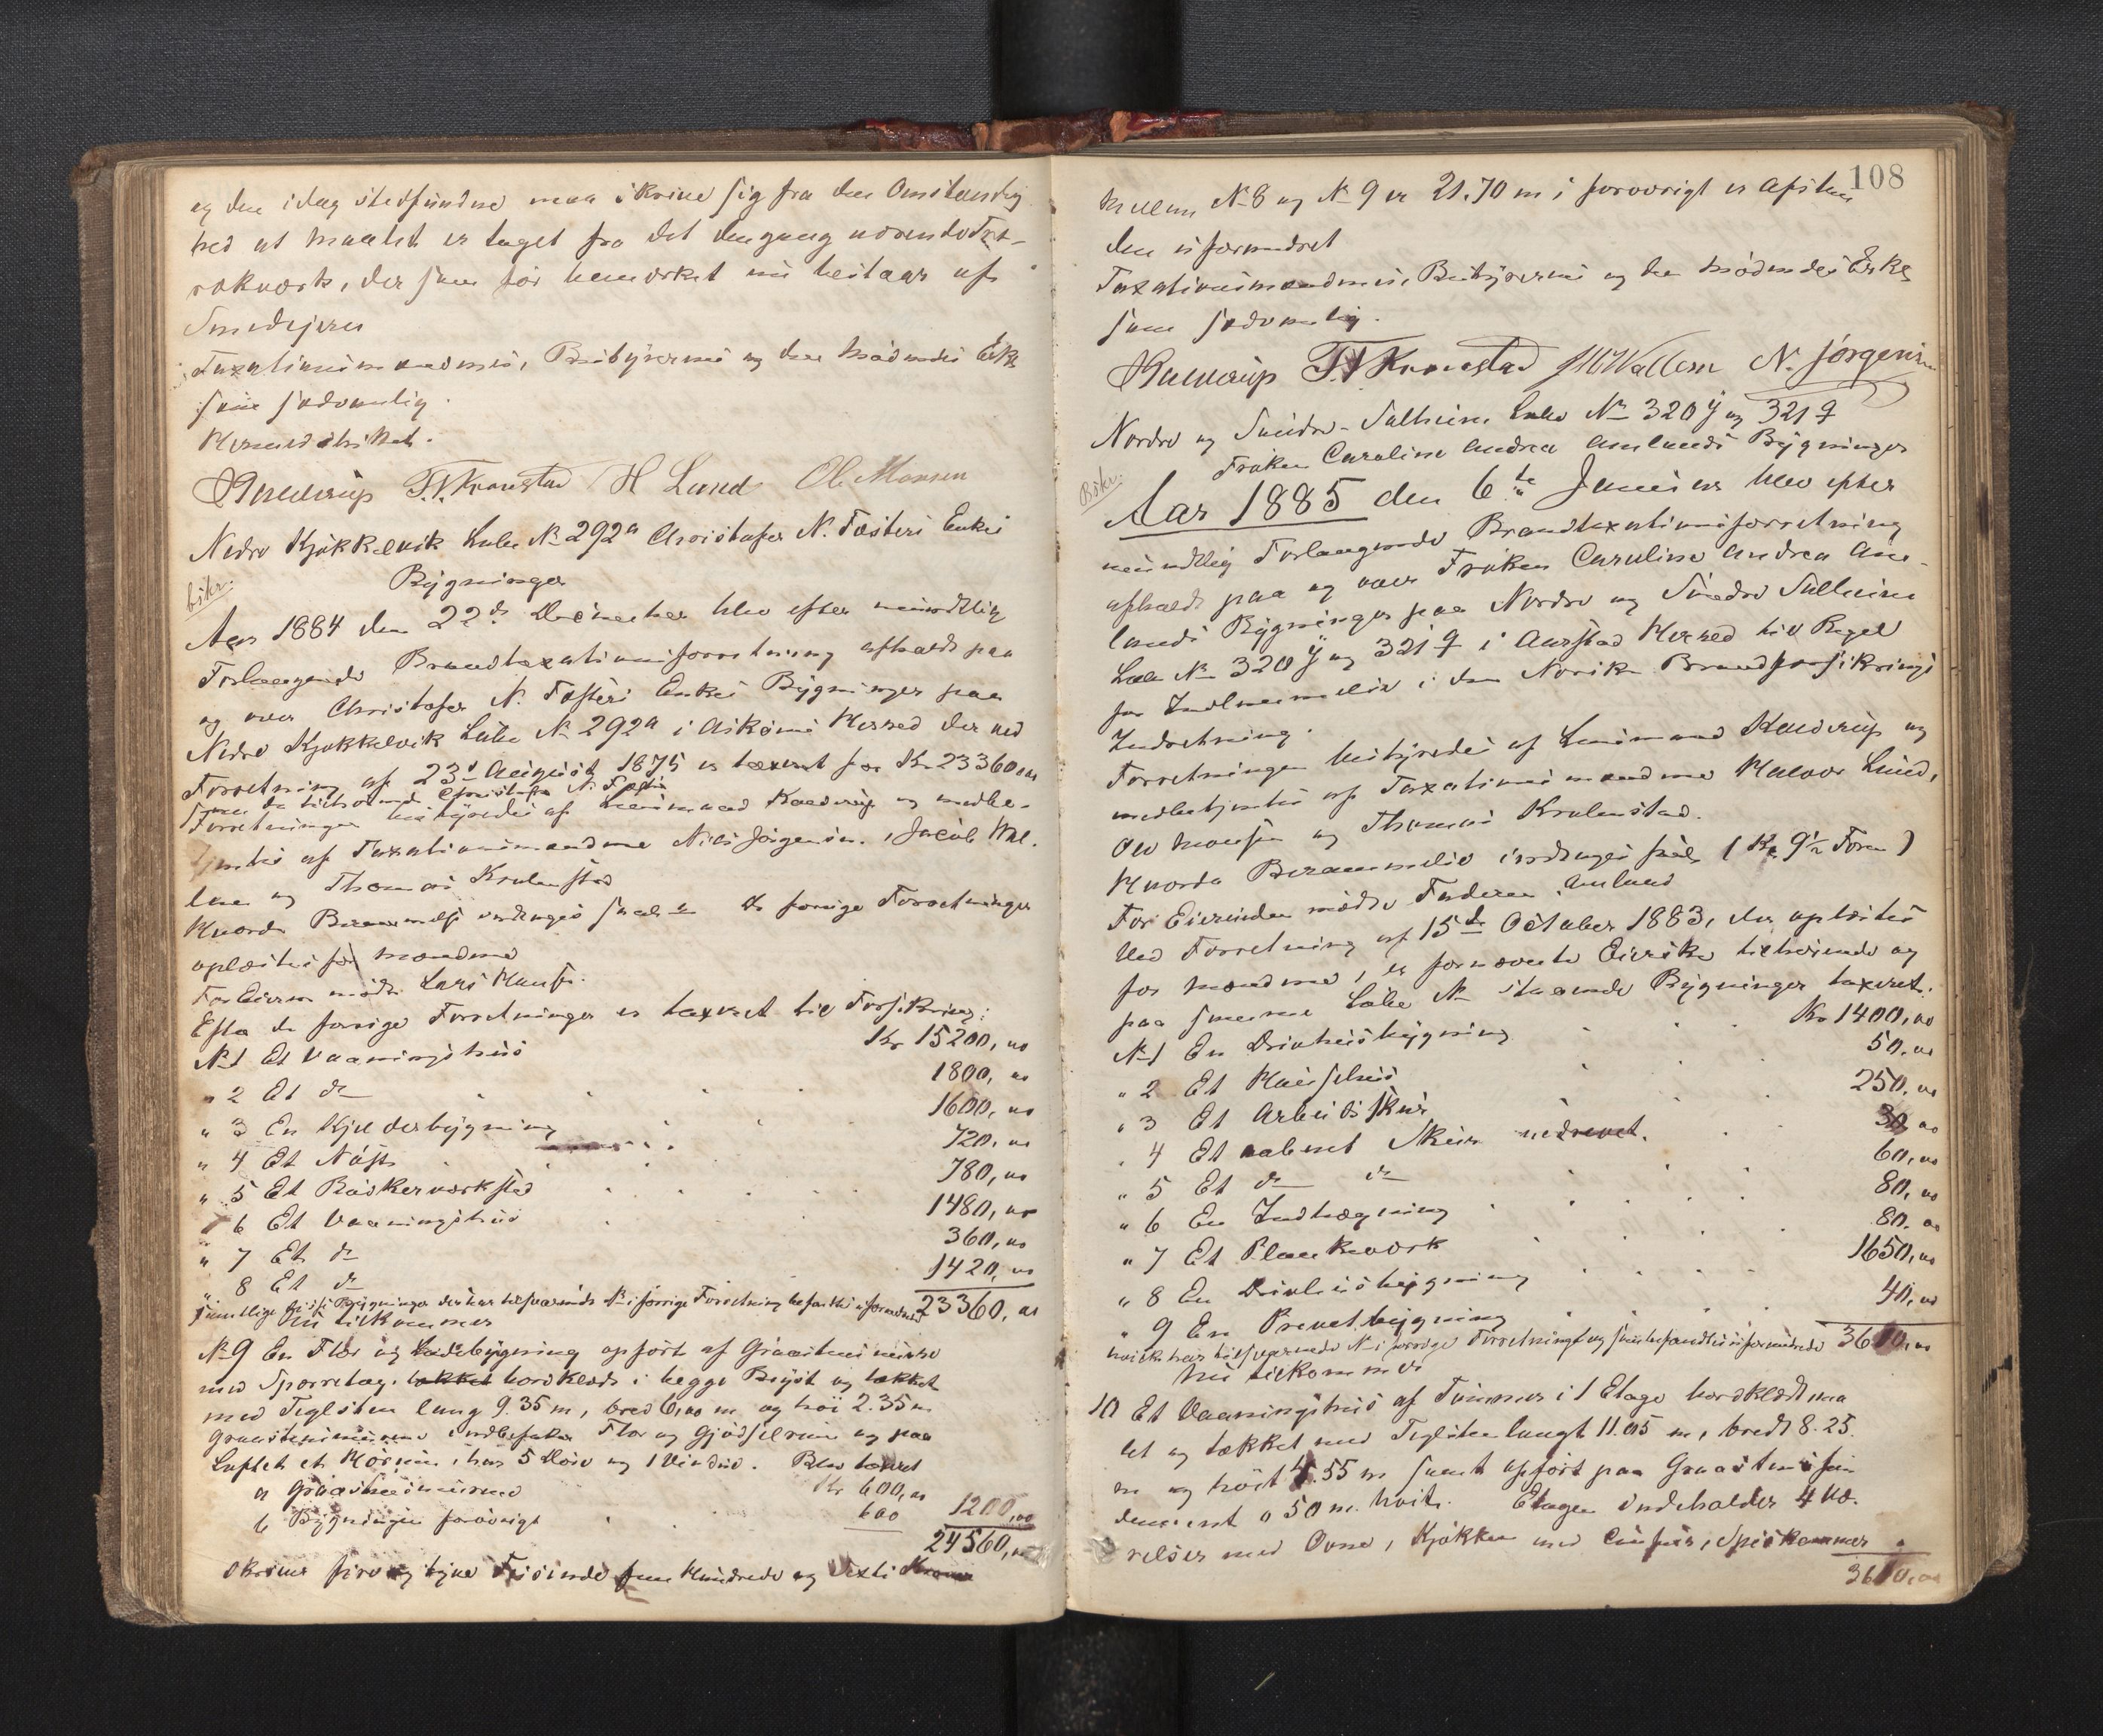 og den idag stedfundne maa skrive sig fra den Omstændig
hed at Maalet er taget fra det dengang værende Træ-
rækværk, der som før bemærket nu bestaar af
Smedejern
Taxationsmændenes, Bestyrernes og den mødendes Erklæ
som sædvanlig.
Hermed sluttet.
Kaldrup T. N. Kronstad H Lund Ole Monsen
Nedre Kjøkkelvik Løbe No 292a Christofer N. Fosters Enkes
Bygninger
bskr.
Aar 1884 den 22de December blev efter mundtlig
Forlangende Brandtaxationsforretning afholdt paa
og over Christofer N. Fosters Enkes Bygninger paa
Nedre Kjøkkelvik Løbe No 292a i Askøens Herred der ved
Forretning af 23de August 1875 er taxeret for Kr 23360,00
som da tilhørende Christofer N. Foster
Forretningen bestyredes af Lensmand Kaldrup og medbe-
tjentes af Taxationsmændene Nils Jørgensen, Jacob Wal-
lem og Thomas Kronstad
Hvorda Berammelse undtages saal De forrige Forretninger
oplæstes for Mændene
For Eieren mødte Lars Hansen.
Efter de forrige Forretninger er taxeret til Forsikring:
No 1 Et Vaaningshus Kr 15200,00
" 2 Et do 1800,00
" 3 En Kjelderbygning 1600,00
" 4 Et Nøst 720,00
" 5 Et Bødkerværksted 780,00
" 6 Et Vaaningshus 1480,00
" 7 Et do 360,00
" 8 Et do 1420,00
Samtlige disse Bygninger der har tilsvarende No i forrige Forretning befandtes uforandret 23360,00
Nu tilkommer
No 9 En Flor og Ladebygning opført af Graastensmure
med Sperretag, tækket bordklædt i begge Bryst og tækket
med Teglsten lang 9.35 m, bred 6,00 m og høi 2.35 m
Graastensmurene indbefatter Flor og Gjødselrum og paa
Loftet et Hørum, har 5 Døre og 1 Vindue. Blev taxeret
a Graastensmurene Kr 600,00
b Bygningen forøvrigt 600 1200,00
24560,00
skriver fire og tyve Tusinde fem Hundrede og Sexti Kroner
108
mellem No 8 og No 9 er 21.70 m i forøvrigt er Afstan
den uforandret
Taxationsmændenes, Bestyrernes og den mødendes Erkl
som sædvanlig.
Kaldrup T. N. Kronstad J M Wallem N. Jørgensen
Nordre og Søndre Solheim Løbe No 320 y og 321 q
Frøken Caroline Andrea Amlunds Bygninger
Bskr.
Aar 1885 den 6te Januar blev efter
mundtlig Forlangende Brandtaxationsforretning
afholdt paa og over Frøken Caroline Andrea Am-
lunds Bygninger paa Nordre og Søndre Solheim
Løbe No 320 y og 321 q i Aarstad Herred til Regel
for Indlemmelse i den Norske Brandforsikrings
Indretning.
Forretningen bestyredes af Lensmand Kaldrup og
medbetjentes af Taxationsmændene Halvor Lund,
Ole Monsen og Thomas Kronstad.
Hvorda Berammelse undtages saal (Kl 9½ Form)
For Eierinden mødte Faderen Amlund
Ved Forretning af 15de October 1883, der oplæstes
for Mændene, er fornævnte Eierske tilhørende og
paa samme Løbe No staaende Bygninger taxeret.
No 1 En Drivhusbygning Kr 1400,00
" 2 Et Huusly 50,00
" 3 Et Arbeidsskur 250,00
" 4 Et aabent Skur nedrevet. 30,00
" 5 Et do do 60,00
" 6 En Indhægning 80,00
" 7 Et Plankeværk 80,00
" 8 En Drivhusbygning 1650,00
" 9 En Privetbygning 40,00
hvilke har tilsvarende No i forrige Forretning og som befandtes uforandrede 3610,00
Nu tilkommer
10 Et Vaaningshus af Tømmer i 1 Etage bordklædt ma
let og tækket med Teglsten langt 11.05 m, bredt 8.25
m og høit 4.55 m samt opført paa Graastensfun
dament 0,50 m. høit. Etagen indeholder 4 Væ-
relser med Ovne, Kjøkken med Comfur, Spiskammer
3610,00